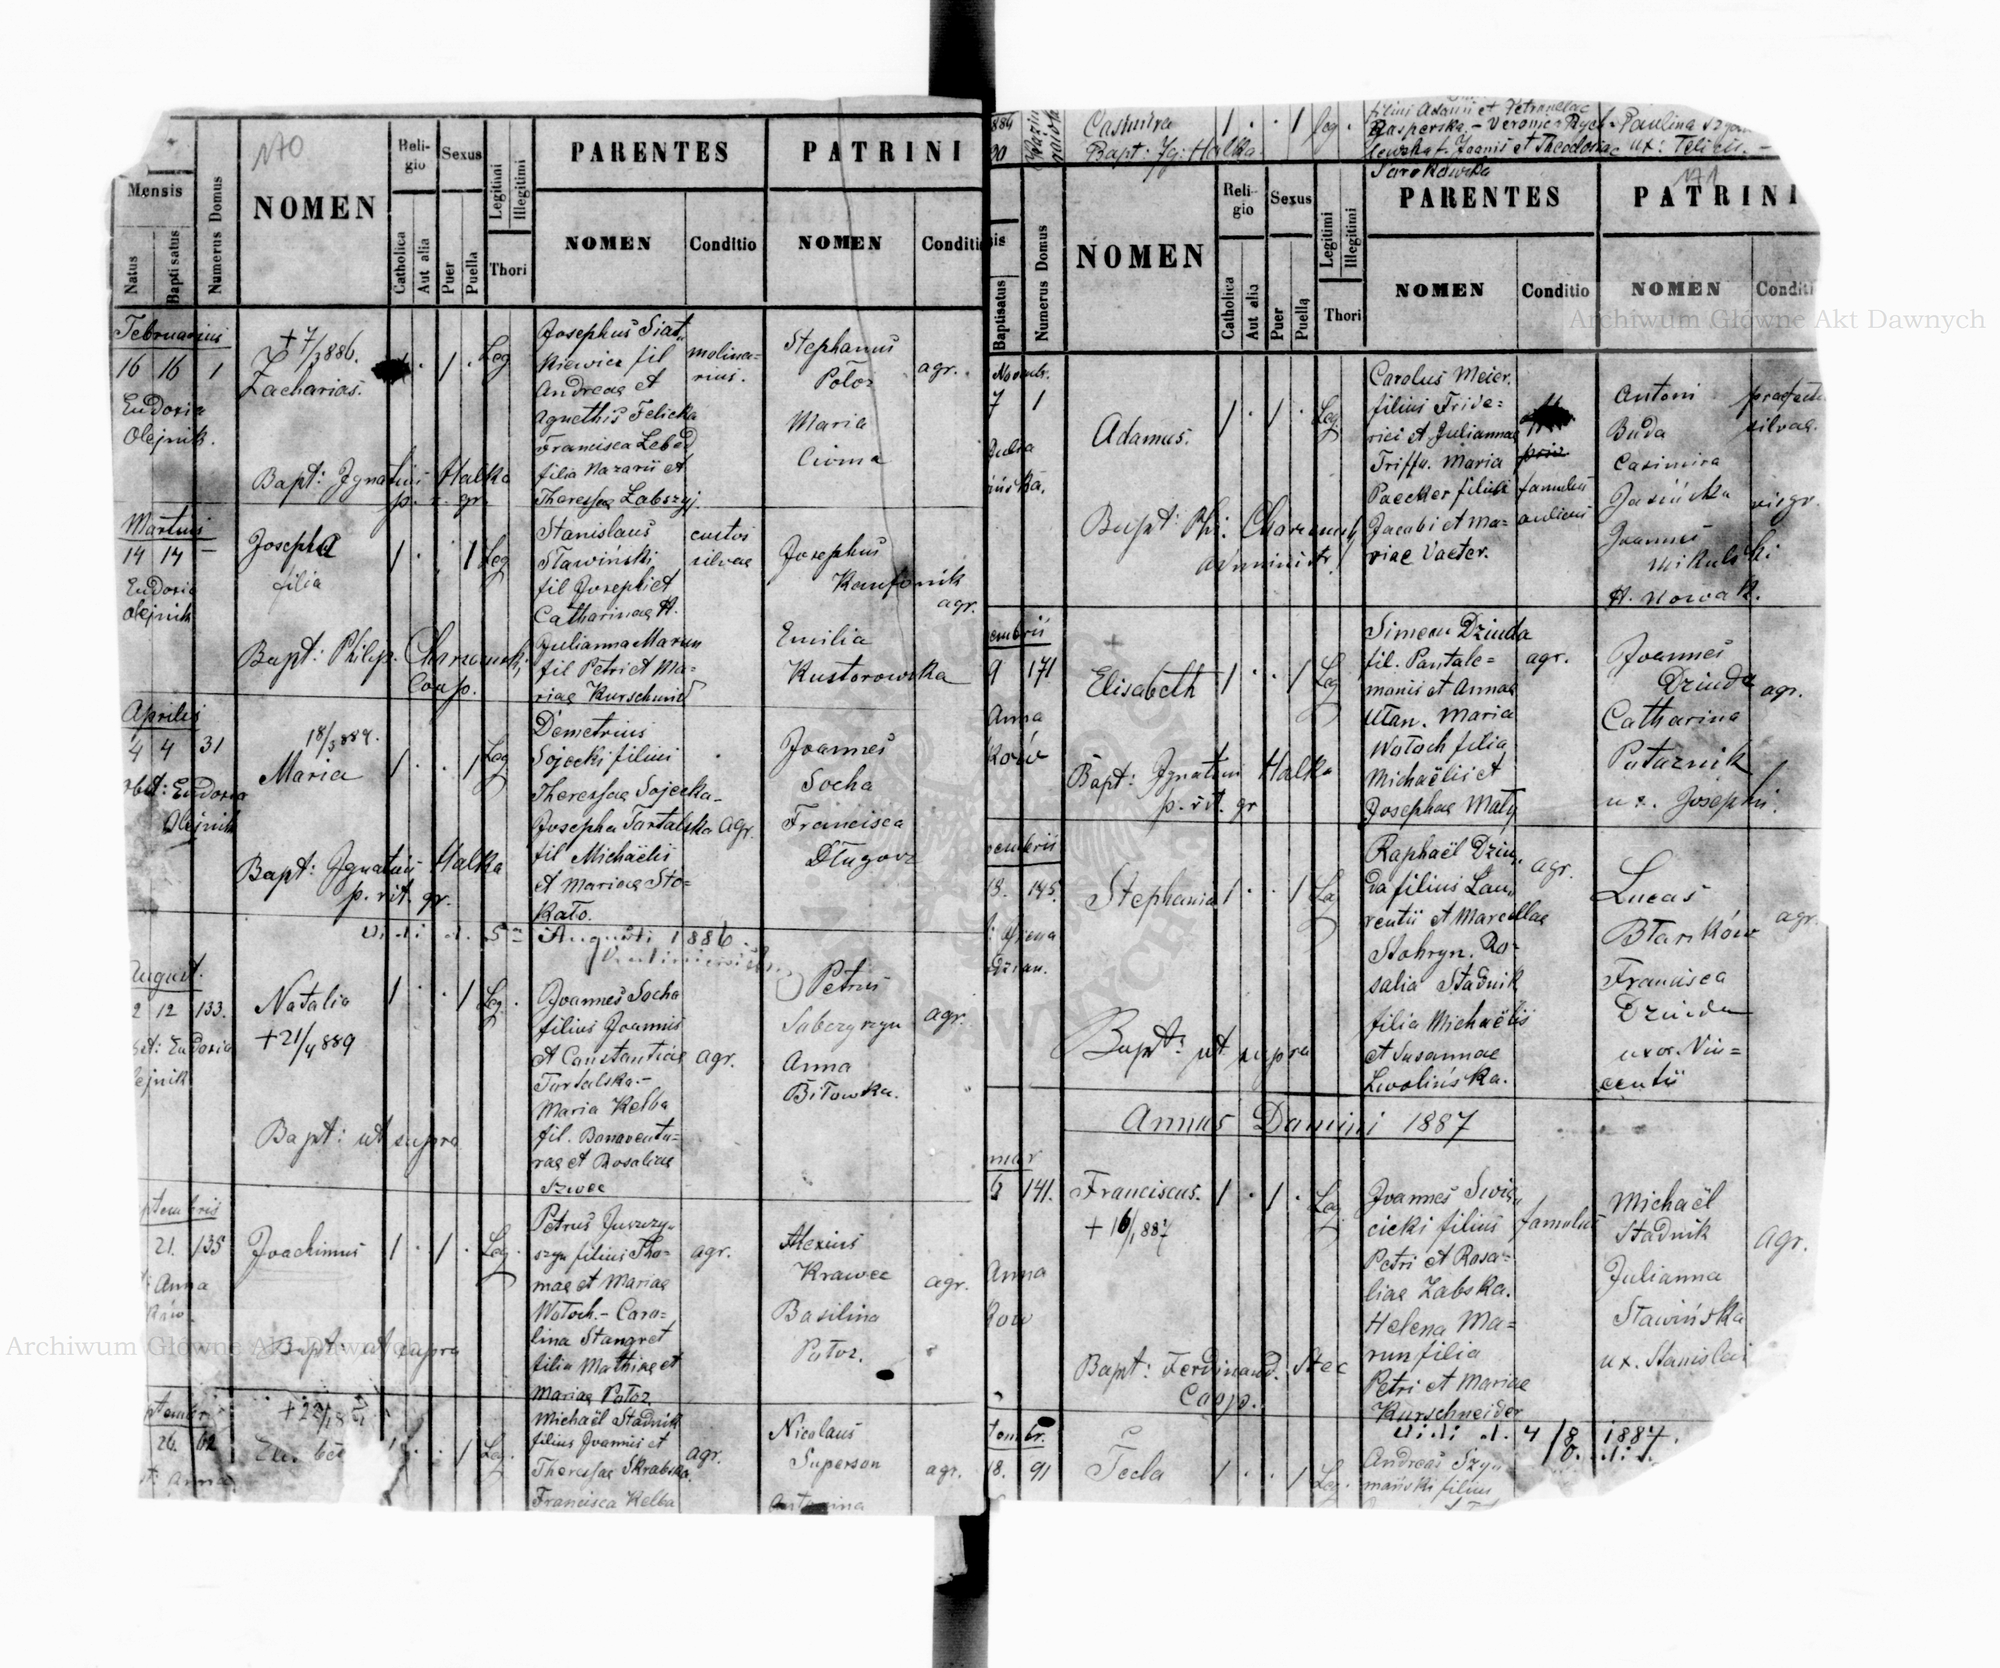 170
Mensis
Natus
Baptisatus
Numerus Domus
NOMEN
Reli-
gio
Catholica
Aut alia
Sexus
Puer
Puella
Legitimi
Illegitimi
Thori
PARENTES
NOMEN
Conditio
PATRINI
NOMEN
Conditi
Februarius
16 16 1
Eudoxia
Olejnik.
+ 7/3 886.
Zacharias.
Bapt: Ignatius Halka
p. r. gr.
1 Leg
Josephus Siat„
Kiewicz fil
Andreae et
Agnethis Felicka
Francisca Lebed
filia Nazarii et
Theressae Zabszyj.
molina=
rius.
Stephanus
Potoz
Maria
Ciona
agr.
Martius
14 14 –
Eudoxia
Olejnik
Josepha
filia
Bapt: Philip. Charowski,
Coop.
1 1 Leg
Stanislaus
Stawiński
fil Josephi et
Catharinae H.
Julianna Marun
fil Petri et Ma-
riae Kurschneid
custos
silvae
Josephus
Kanfonik
agr.
Emilia
Kustorowska
Aprilis
4 4 31
obst: Eudoxia
Olejnik
18/3 889.
Maria
Bapt: Ignatius Halka
p. rit. gr.
1 1 Leg
Demetrius
Sojecki filius
Theressae Sojecka-
Josepha Tartalska agr.
fil Michaëlis
et Mariae Sto=
Kato.
Joannes
Socha
Francisca
Długosz
Vidi d. 5ta Augusti 1886.
August.
2 12 133.
Eudoxia
ejnik
Natalia
+21/4 889
Bapt: ut supra
1 1 Leg.
Joannes Socha
filius Joannis
et Constantiae agr.
Tartalska.-
Maria Kelba
fil. Bonaventu=
rae et Rosaliae
Szwec
Petrus
Sabczyszyn
agr.
Anna
Bitowska.
ptembris
21. 135
Anna
Joachimus
Bapt: ut supra
1 1 Leg.
Petrus Juszczy„
szyn filius Tho=
mae et Mariae
Wotoch.- Caro=
lina Stangret
filia Mathiae et
Mariae Potoz.
agr.
Alexius
Krawec
agr.
Basilina
Potoz.
ptembr
26. 62
Anna
1 1 Leg.
Michaël Stadnik
filius Joannis et
Theressae Skrabska.
Francisca Kelba
agr.
Nicolaus
Superson
agr.
Antonina
886
Casimira
Bapt: Ig: Halka.
1 1 leg.
filini Adami et Petronellae
Kasperska. - Veronica Rych-
lewska f. Joanis et Theodosiae
Sarokowska
Paulina
ux: Felicis. -
171
Baptisatus
Numerus Domus
NOMEN
Reli-
gio
Catholica
Aut alia
Sexus
Puer
Puella
Legitimi
Illegitimi
Thori
PARENTES
NOMEN
Conditio
PATRINI
NOMEN
Conditi
Novembr.
7 1
Adamus.
Bapt: Phi: Charowski
administr.
1 1 Leg
Carolus Meier.
filius Fride=
rici et Juliannae
Triffu. Maria
Paecker filia
Jacobi et Ma-
riae Vaeter.
famulus
aulicus
Antoni
Buda
Casimira
Jasińska
Joannes
Mikulski
A. Nowak.
praefect
silvae.
embrii
9 171
Anna
Elisabeth
Bapt: Ignatius Halka
p. rit. gr
1 1 Leg
Simeon Dziuda
fil. Pantale=
monis et Annae
Utan. Maria
Wotoch filia
Michaëlis et
Josephae Maty
agr.
Joannes
Dziuda
agr.
Catharina
Putaznik
ux. Josephi.
vembrii
13. 145.
Stephania
Bapt: ut supra
1 1 Leg
Raphaël Dziu„
da filius Lau„
rentii et Marcellae
Stohryn. Ro-
salia Stadnik
filia Michaëlis
et Susannae
Lwolińska.
agr.
Lucas
Btarików
agr.
Francisca
Dziuda
uxor. Vin=
centii
Annus Domini 1887
6 141.
Anna
Franciscus.
+ 16/1 887
Bapt: Ferdinand. Stec
Coop.
1 1 Leg
Joannes Swię„
cicki filius
Petri et Rosa=
liae Zabska.
Helena Ma=
run filia
Petri et Mariae
Kurschneider
famulus
Michaël
Stadnik
Julianna
Stawińska
ux. Stanislai
agr.
Vidi d. 4/8 1887.
18. 91
Tecla
1 1 Leg.
Andreas Szy„
mański filius
Archiwum Główne Akt Dawnych
Archiwum Główne Akt Dawnych